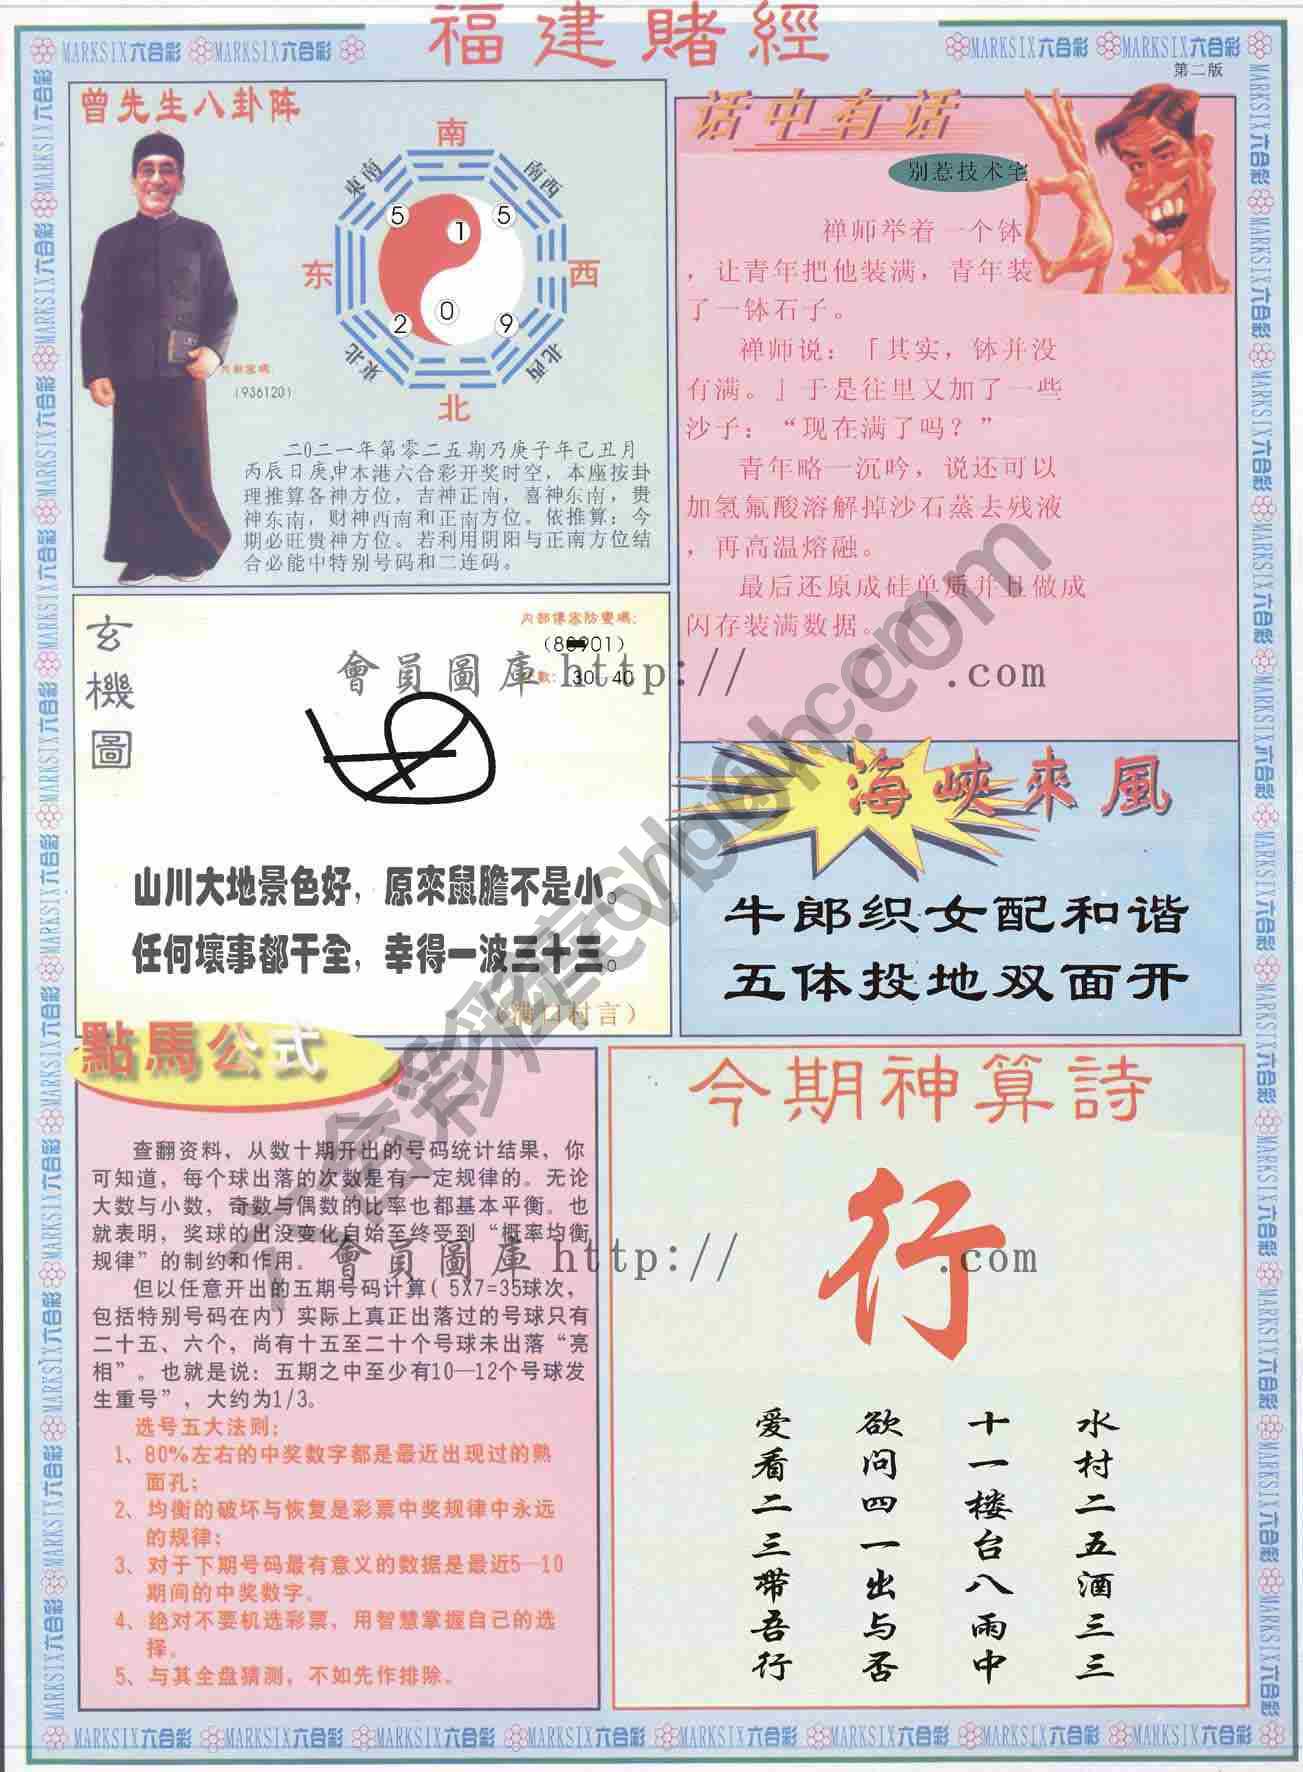 福建賭經
MARKSIX六合彩 MARKSIX六合彩
MARKSIX六合彩 MARKSIX六合彩
第二版
曾先生八卦阵
南
東南
南西
5
1
5
东
西
2
0
9
東北
北西
北
(936120)
二0二一年第零二五期乃庚子年己丑月
丙辰日庚申本港六合彩开奖时空，本座按卦
理推算各神方位，吉神正南，喜神东南，贵
神东南，财神西南和正南方位。依推算：今
期必旺贵神方位。若利用阴阳与正南方位结
合必能中特别号码和二连码。
话中有话
别惹技术宅
禅师举着一个钵
，让青年把他装满，青年装
了一钵石子。
禅师说：「其实，钵并没
有满。」于是往里又加了一些
沙子：“现在满了吗？”
青年略一沉吟，说还可以
加氢氟酸溶解掉沙石蒸去残液
，再高温熔融。
最后还原成硅单质并且做成
闪存装满数据。
玄機圖
30、40
會員圖庫 http:// .com
山川大地景色好，原來鼠膽不是小。
任何壞事都干全，幸得一波三十三。
（满口村言）
海峽來風
牛郎织女配和谐
五体投地双面开
點馬公式
查翻资料，从数十期开出的号码统计结果，你
可知道，每个球出落的次数是有一定规律的。无论
大数与小数，奇数与偶数的比率也都基本平衡。也
就表明，奖球的出没变化自始至终受到“概率均衡
规律”的制约和作用。
但以任意开出的五期号码计算( 5X7=35球次，
包括特别号码在内）实际上真正出落过的号球只有
二十五、六个，尚有十五至二十个号球未出落“亮
相”。也就是说：五期之中至少有10—12个号球发
生重号”，大约为1/3。
选号五大法则：
1、80%左右的中奖数字都是最近出现过的熟
面孔；
2、均衡的破坏与恢复是彩票中奖规律中永远
的规律；
3、对于下期号码最有意义的数据是最近5—10
期间的中奖数字。
4、绝对不要机选彩票，用智慧掌握自己的选
择。
5、与其全盘猜测，不如先作排除。
會員圖庫 http:// .com
今期神算詩
行
水村二五酒三三
十一楼台八雨中
欲问四一出与否
爱看二三带吾行
MARKSIX六合彩 MARKSIX六合彩 MARKSIX六合彩 MARKSIX六合彩 MARKSIX六合彩 MARKSIX六合彩 MARKSIX六合彩 MARKSIX六合彩